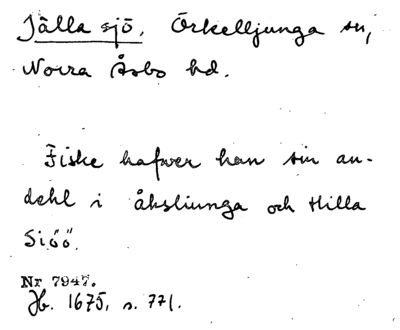 Jälla sjö, Örkelljunga sn,
Norra Åsbo hd.
Fiske hafwer han sin an-
dehl i åksliunga och Hilla
Siöö.
Nr 7947.
Jb. 1675, s. 771.